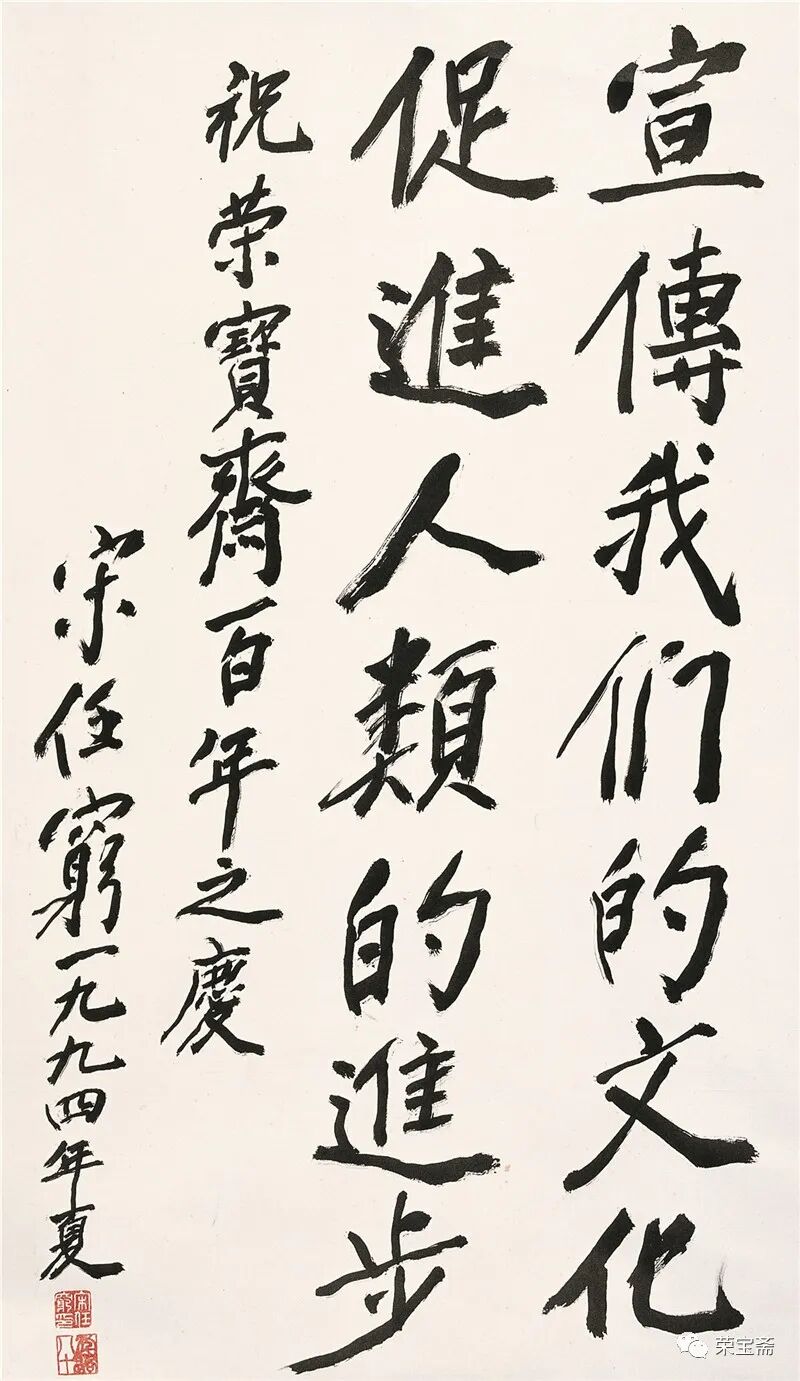 宣傳我们的文化
促進人類的進步
祝荣寶齋百年之慶
宋任窮一九九四年夏
宋任窮印
荣宝斋